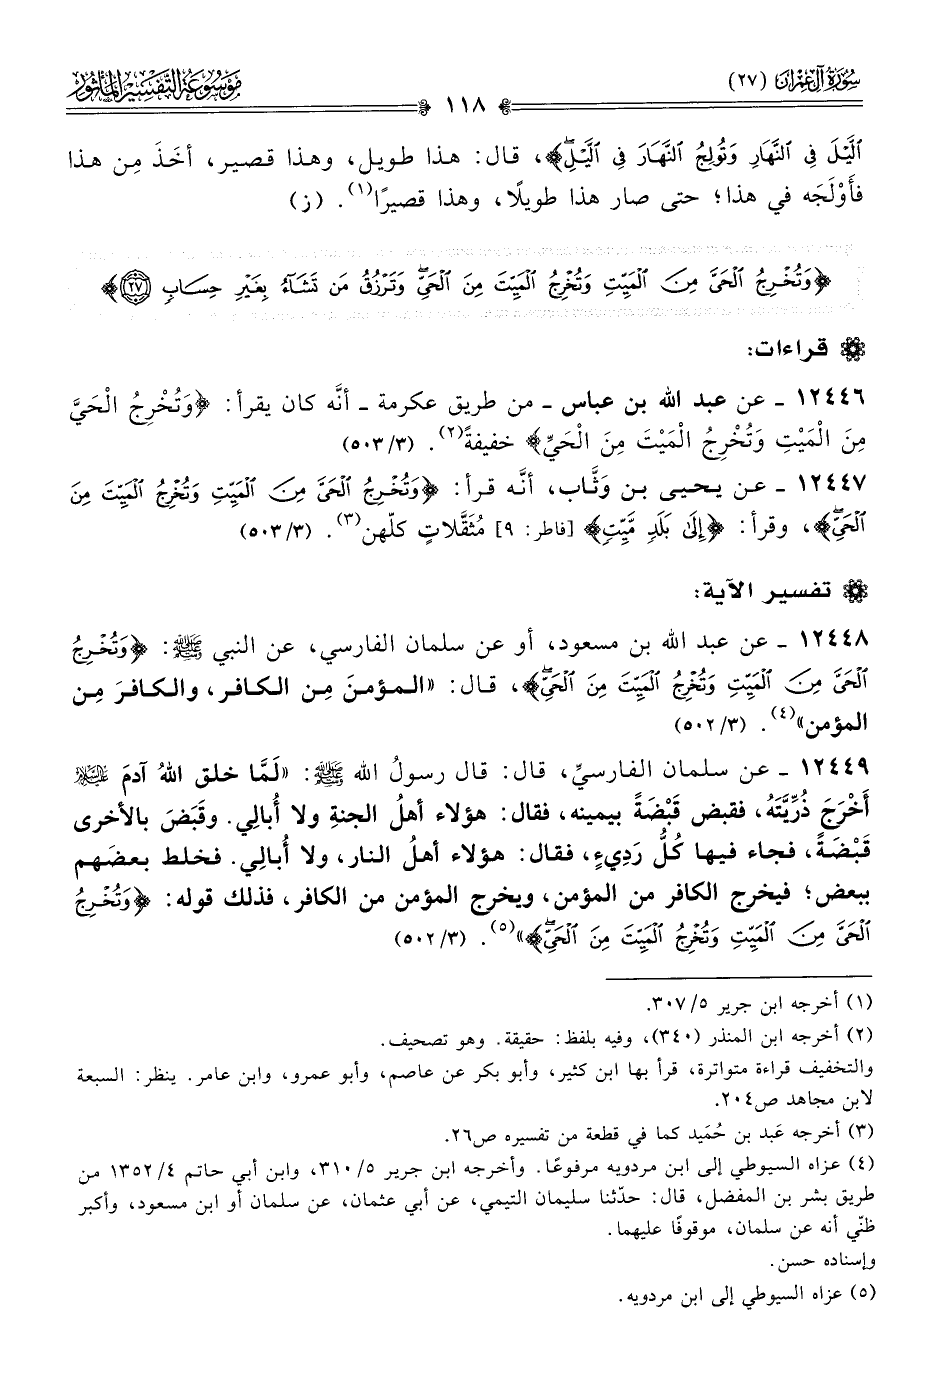 سُورَةُ آلِ عِمْرَان (٢٧)
١١٨
مَوْسُوعَةُ التَّفْسِيرِ المَأْثُور
الَّيْلَ فِي النَّهَارِ وَتُولِجُ النَّهَارَ فِي الَّيْلِۖ﴾، قال: هذا طويل، وهذا قصير، أخَذَ مِن هذا
فأَوْلَجَه في هذا؛ حتى صار هذا طويلًا، وهذا قصيرًا(١). (ز)
﴿وَتُخْرِجُ الْحَيَّ مِنَ الْمَيِّتِ وَتُخْرِجُ الْمَيِّتَ مِنَ الْحَيِّۖ وَتَرْزُقُ مَن تَشَآءُ بِغَيْرِ حِسَابٍ ٢٧﴾
قراءات:
١٢٤٤٦ ـ عن عبد الله بن عباس ـ من طريق عكرمة ـ أنَّه كان يقرأ: ﴿وَتُخْرِجُ الْحَيَّ
مِنَ الْمَيْتِ وَتُخْرِجُ الْمَيْتَ مِنَ الْحَيِّ﴾ خفيفةً(٢). (٣/ ٥٠٣)
١٢٤٤٧ ـ عن يحيى بن وَثَّاب، أنَّه قرأ: ﴿وَتُخْرِجُ الْحَيَّ مِنَ الْمَيِّتِ وَتُخْرِجُ الْمَيِّتَ مِنَ
الْحَيِّۖ﴾، وقرأ: ﴿إِلَىٰ بَلَدٍ مَّيِّتٍ﴾ [فاطر: ٩] مُثقَّلاتٍ كلّهن(٣). (٣/ ٥٠٣)
تفسير الآية:
١٢٤٤٨ ـ عن عبد الله بن مسعود، أو عن سلمان الفارسي، عن النبي ﷺ: ﴿وَتُخْرِجُ
الْحَيَّ مِنَ الْمَيِّتِ وَتُخْرِجُ الْمَيِّتَ مِنَ الْحَيِّۖ﴾، قال: «المؤمنَ مِن الكافر، والكافرَ مِن
المؤمن»(٤). (٣/ ٥٠٢)
١٢٤٤٩ ـ عن سلمان الفارسيِّ، قال: قال رسولُ الله ﷺ: «لَمَّا خلق اللهُ آدمَ عليه السلام
أَخْرَجَ ذُرِّيَّتَهُ، فقبض قَبْضَةً بيمينه، فقال: هؤلاء أهلُ الجنةِ ولا أُبالِي. وقَبَضَ بالأخرى
قَبْضَةً، فجاء فيها كُلُّ رَدِيءٍ، فقال: هؤلاء أهلُ النار، ولا أُبالِي. فخلط بعضَهم
ببعض؛ فيخرج الكافر من المؤمن، ويخرج المؤمن من الكافر، فذلك قوله: ﴿وَتُخْرِجُ
الْحَيَّ مِنَ الْمَيِّتِ وَتُخْرِجُ الْمَيِّتَ مِنَ الْحَيِّۖ﴾»(٥). (٣/ ٥٠٢)
(١) أخرجه ابن جرير ٥/ ٣٠٧.
(٢) أخرجه ابن المنذر (٣٤٠)، وفيه بلفظ: حقيقة. وهو تصحيف.
والتخفيف قراءة متواترة، قرأ بها ابن كثير، وأبو بكر عن عاصم، وأبو عمرو، وابن عامر. ينظر: السبعة
لابن مجاهد ص٢٠٤.
(٣) أخرجه عَبد بن حُمَيد كما في قطعة من تفسيره ص٢٦.
(٤) عزاه السيوطي إلى ابن مردويه مرفوعًا. وأخرجه ابن جرير ٥/ ٣١٠، وابن أبي حاتم ٤/ ١٣٥٢ من
طريق بشر بن المفضل، قال: حدّثنا سليمان التيمي، عن أبي عثمان، عن سلمان أو ابن مسعود، وأكبر
ظنّي أنه عن سلمان، موقوفًا عليهما.
وإسناده حسن.
(٥) عزاه السيوطي إلى ابن مردويه.